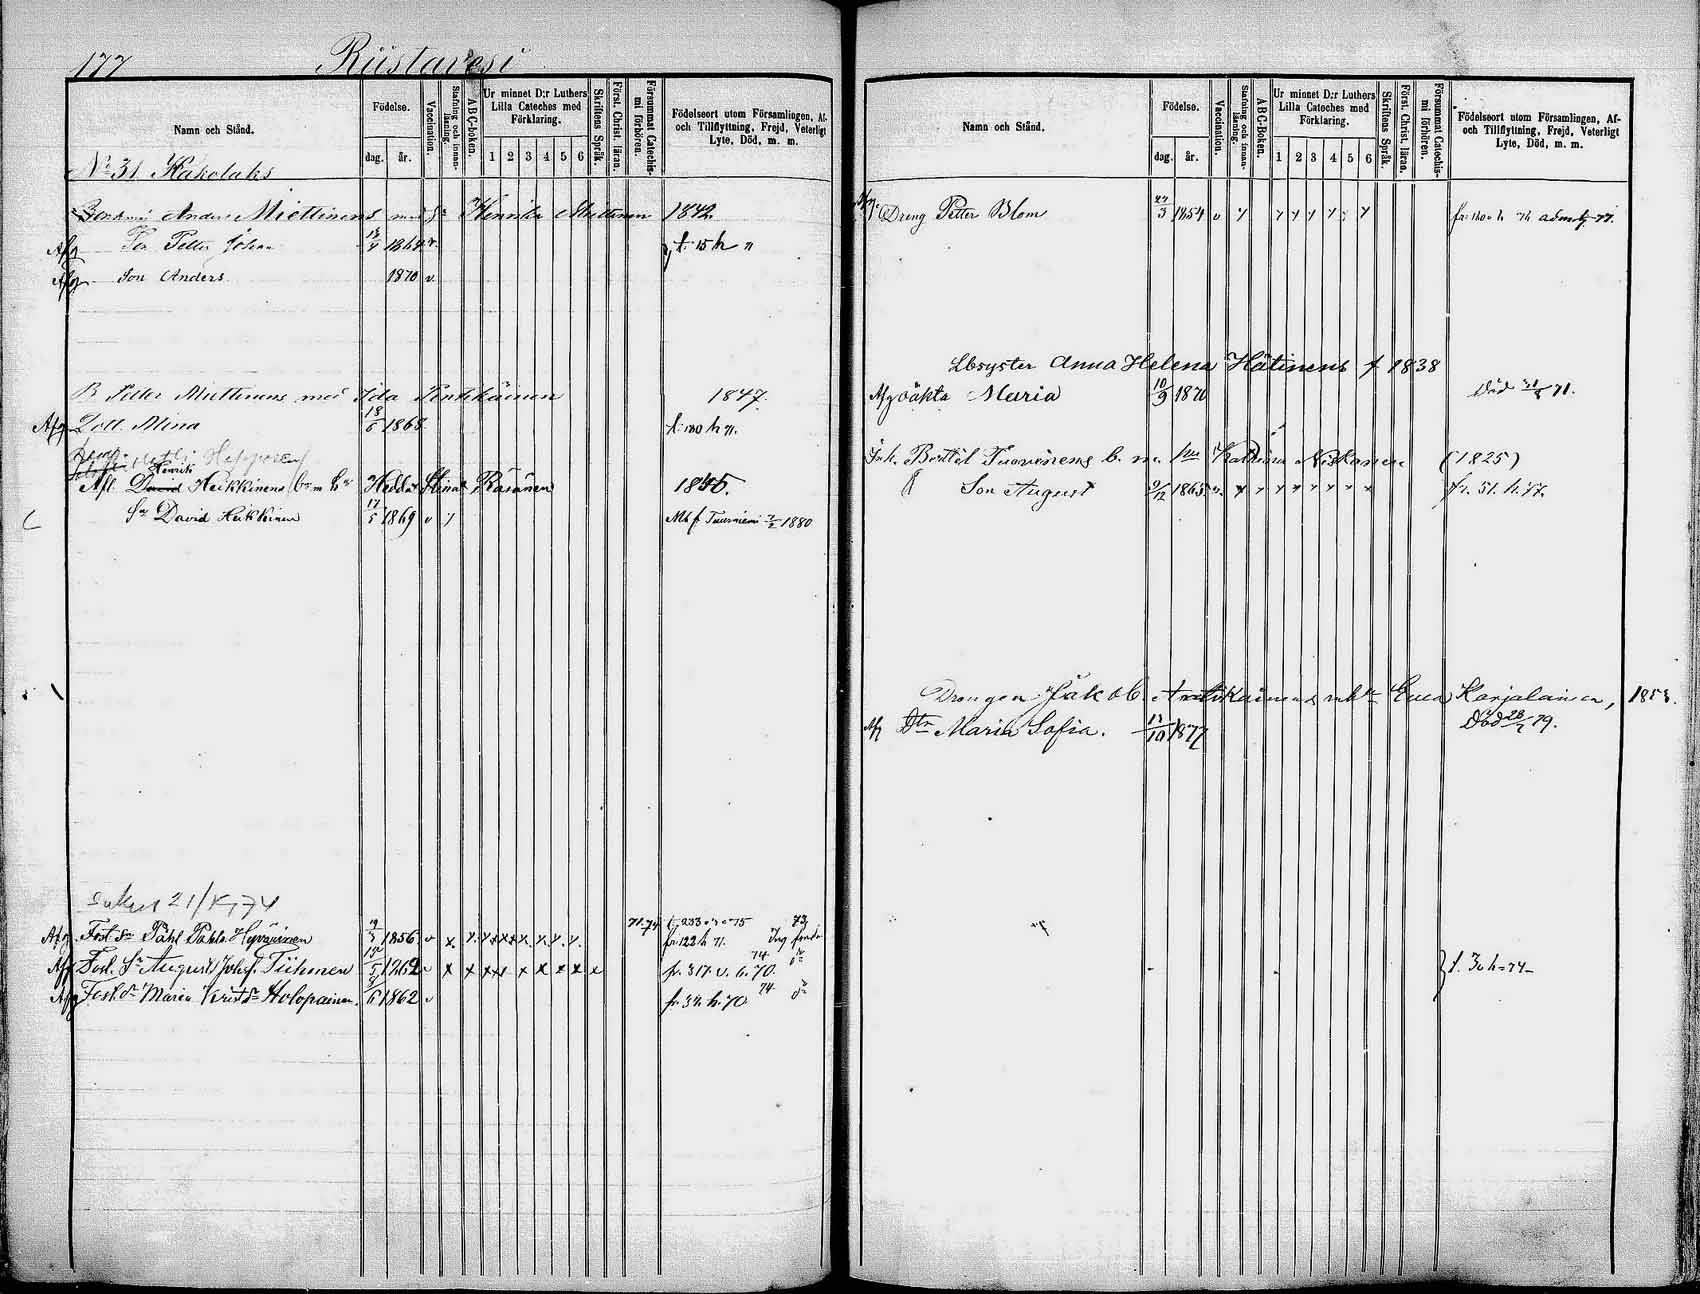 177 Riistavesi
Namn och Stånd.
Födelse.
dag.
år.
Vaccination.
Stafning och innanläsning.
A B C-boken.
Ur minnet D:r Luthers Lilla Cateches med Förklaring.
1 2 3 4 5 6
Skriftens Språk.
Först. Christ. läran.
Försummat Catechismi förhören.
Födelseort utom Församlingen, Af- och Tillflyttning, Frejd, Veterligt Lyte, Död, m. m.
No 31 Kakolaks
Anders Miettinens med Henrika Miettinen 1842
Afg Son Petter Johan 1864 v. t. 15 h "
Afg Son Anders 1870 v.
B Petter Miettinens med Ida Pentikäinen 1847.
Afg Dott. Mina 18/6 1868 t. 180 h 71.
Henrik
Afl. David Heikkinens Hedda Stina Räsänen
Sn David Heikkinen 17/5 1869 v y Mb f. Tuusniemi 7/2 1880
21/ 74
Afg Fost Sn Påhl Påhls. Hyvärinen 1856 v x y 71.74 t. 233 75 73
fr. 122 h 71.
Afg Fost. Sn August Johs. Tiihonen 1262 v x x x x x x x x fr. 317. v. h. 70. 74
Afg Fost. dr Maria Holopainen. 9/6 1862 v fr. 34. h. 70. 74
Namn och Stånd.
Födelse.
dag.
år.
Vaccination.
Stafning och innanläsning.
A B C-Boken.
Ur minnet D:r Luthers Lilla Cateches med Förklaring.
1 2 3 4 5 6
Skriftens Språk.
Först. Christ. läran.
Försummat Catechismi förhören.
Födelseort utom Församlingen, Af- och Tillflyttning, Frejd, Veterligt Lyte, Död, m. m.
Afg. Dreng Petter Blom 27/3 1854 v y y y y y y
Lbsyster Anna Helena Hätinens f 1838
Afg oäkta Maria 10/9 1870 Död 31/8 71.
Inh. Berttil Tuovinens b. m. hu Katrina Niskanen (1825)
Son August 9/12 1865 v. x fr. 51. h. 77.
Drengen Jakob Eva Karjalainen, 1853.
Afg Dtr Maria Sofia. 13/10 1877 Död 28/2 79.
t. 30 h 74